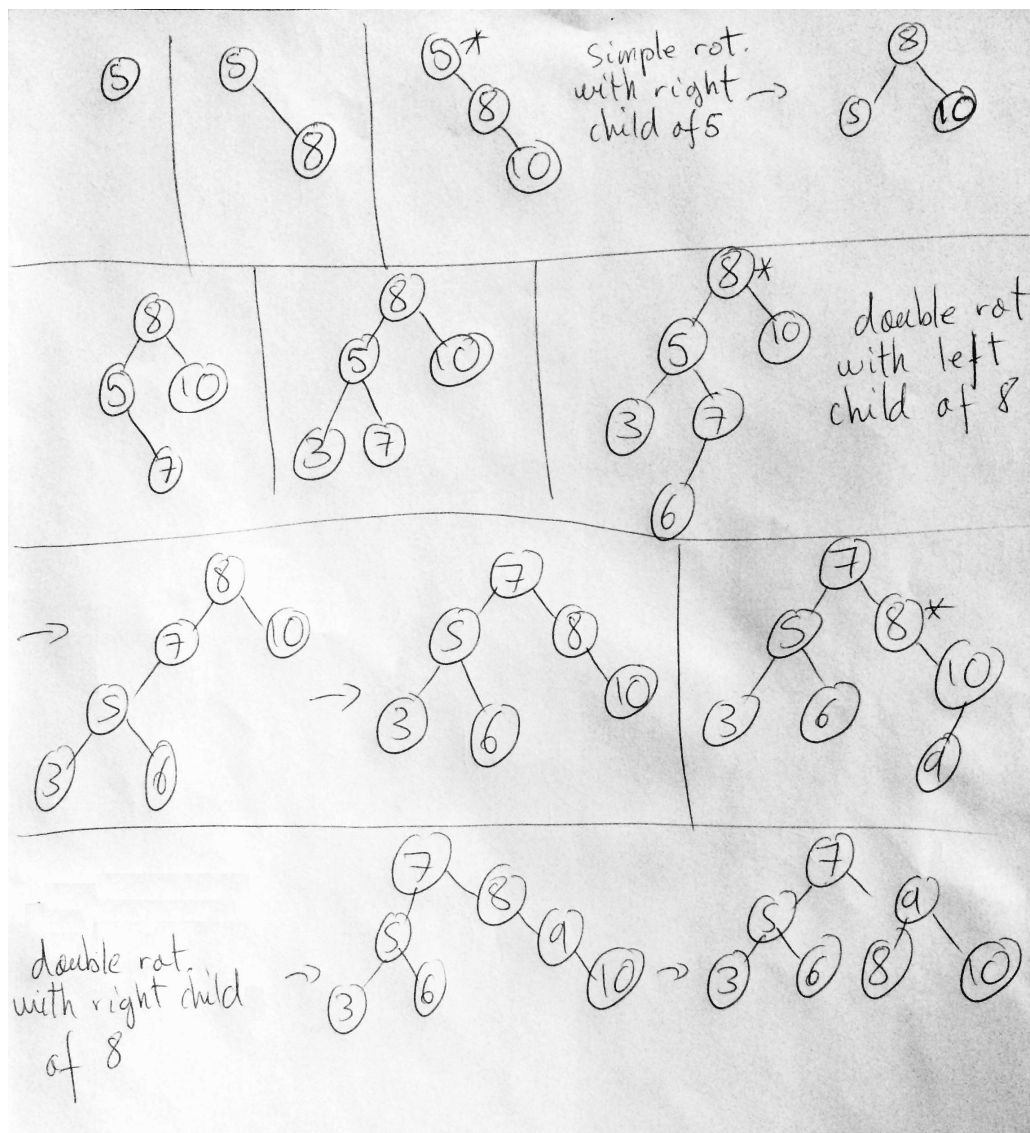 5
5
8
5*
8
10
Simple rot.
with right →
child of 5
8
5 10
8
5 10
7
8
5 10
3 7
8*
5 10
3 7
6
double rot
with left
child of 8
→
8
7 10
5
3 6
→
7
5 8
3 6 10
7
5 8*
3 6 10
9
double rot.
with right child
of 8
→
7
5 8
3 6 9
10
→
7
5 9
3 6 8 10